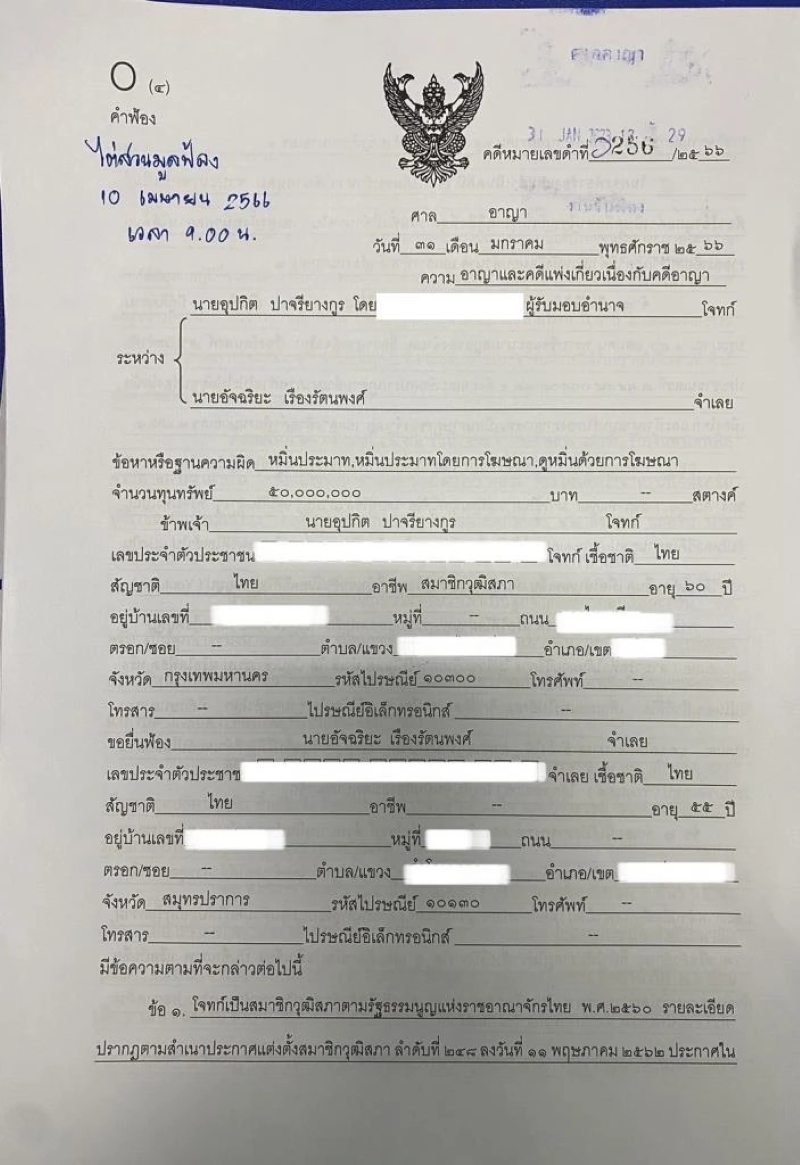 ศาลอาญา
O (๔)
คำฟ้อง
31 JAN 2023 29
คดีหมายเลขดำที่ อ256 /๒๕ ๖๖
ไต่สวนมูลฟ้อง
10 เมษายน 2566
เวลา 9.00 น.
งานรับฟ้อง
ศาล อาญา
วันที่ ๓๑ เดือน มกราคม พุทธศักราช ๒๕ ๖๖
ความ อาญาและคดีแพ่งเกี่ยวเนื่องกับคดีอาญา
นายอุปกิต ปาจรียางกูร โดย ผู้รับมอบอำนาจ โจทก์
ระหว่าง
นายอัจฉริยะ เรืองรัตนพงศ์ จำเลย
ข้อหาหรือฐานความผิด หมิ่นประมาท,หมิ่นประมาทโดยการโฆษณา,ดูหมิ่นด้วยการโฆษณา
จำนวนทุนทรัพย์ ๕๐,๐๐๐,๐๐๐ บาท -- สตางค์
ข้าพเจ้า นายอุปกิต ปาจรียางกูร โจทก์
เลขประจำตัวประชาชน โจทก์ เชื้อชาติ ไทย
สัญชาติ ไทย อาชีพ สมาชิกวุฒิสภา อายุ ๖๐ ปี
อยู่บ้านเลขที่ หมู่ที่ -- ถนน
ตรอก/ซอย -- ตำบล/แขวง อำเภอ/เขต
จังหวัด กรุงเทพมหานคร รหัสไปรษณีย์ ๑๐๓๐๐ โทรศัพท์ --
โทรสาร -- ไปรษณีย์อิเล็กทรอนิกส์ --
ขอยื่นฟ้อง นายอัจฉริยะ เรืองรัตนพงศ์ จำเลย
เลขประจำตัวประชาช จำเลย เชื้อชาติ ไทย
สัญชาติ ไทย อาชีพ -- อายุ ๕๕ ปี
อยู่บ้านเลขที่ หมู่ที่ ถนน --
ตรอก/ซอย -- ตำบล/แขวง อำเภอ/เขต
จังหวัด สมุทรปราการ รหัสไปรษณีย์ ๑๐๑๓๐ โทรศัพท์ --
โทรสาร -- ไปรษณีย์อิเล็กทรอนิกส์ --
มีข้อความตามที่จะกล่าวต่อไปนี้
ข้อ ๑. โจทก์เป็นสมาชิกวุฒิสภาตามรัฐธรรมนูญแห่งราชอาณาจักรไทย พ.ศ.๒๕๖๐ รายละเอียด
ปรากฏตามสำเนาประกาศแต่งตั้งสมาชิกวุฒิสภา ลำดับที่ ๒๔๘ ลงวันที่ ๑๑ พฤษภาคม ๒๕๖๒ ประกาศใน